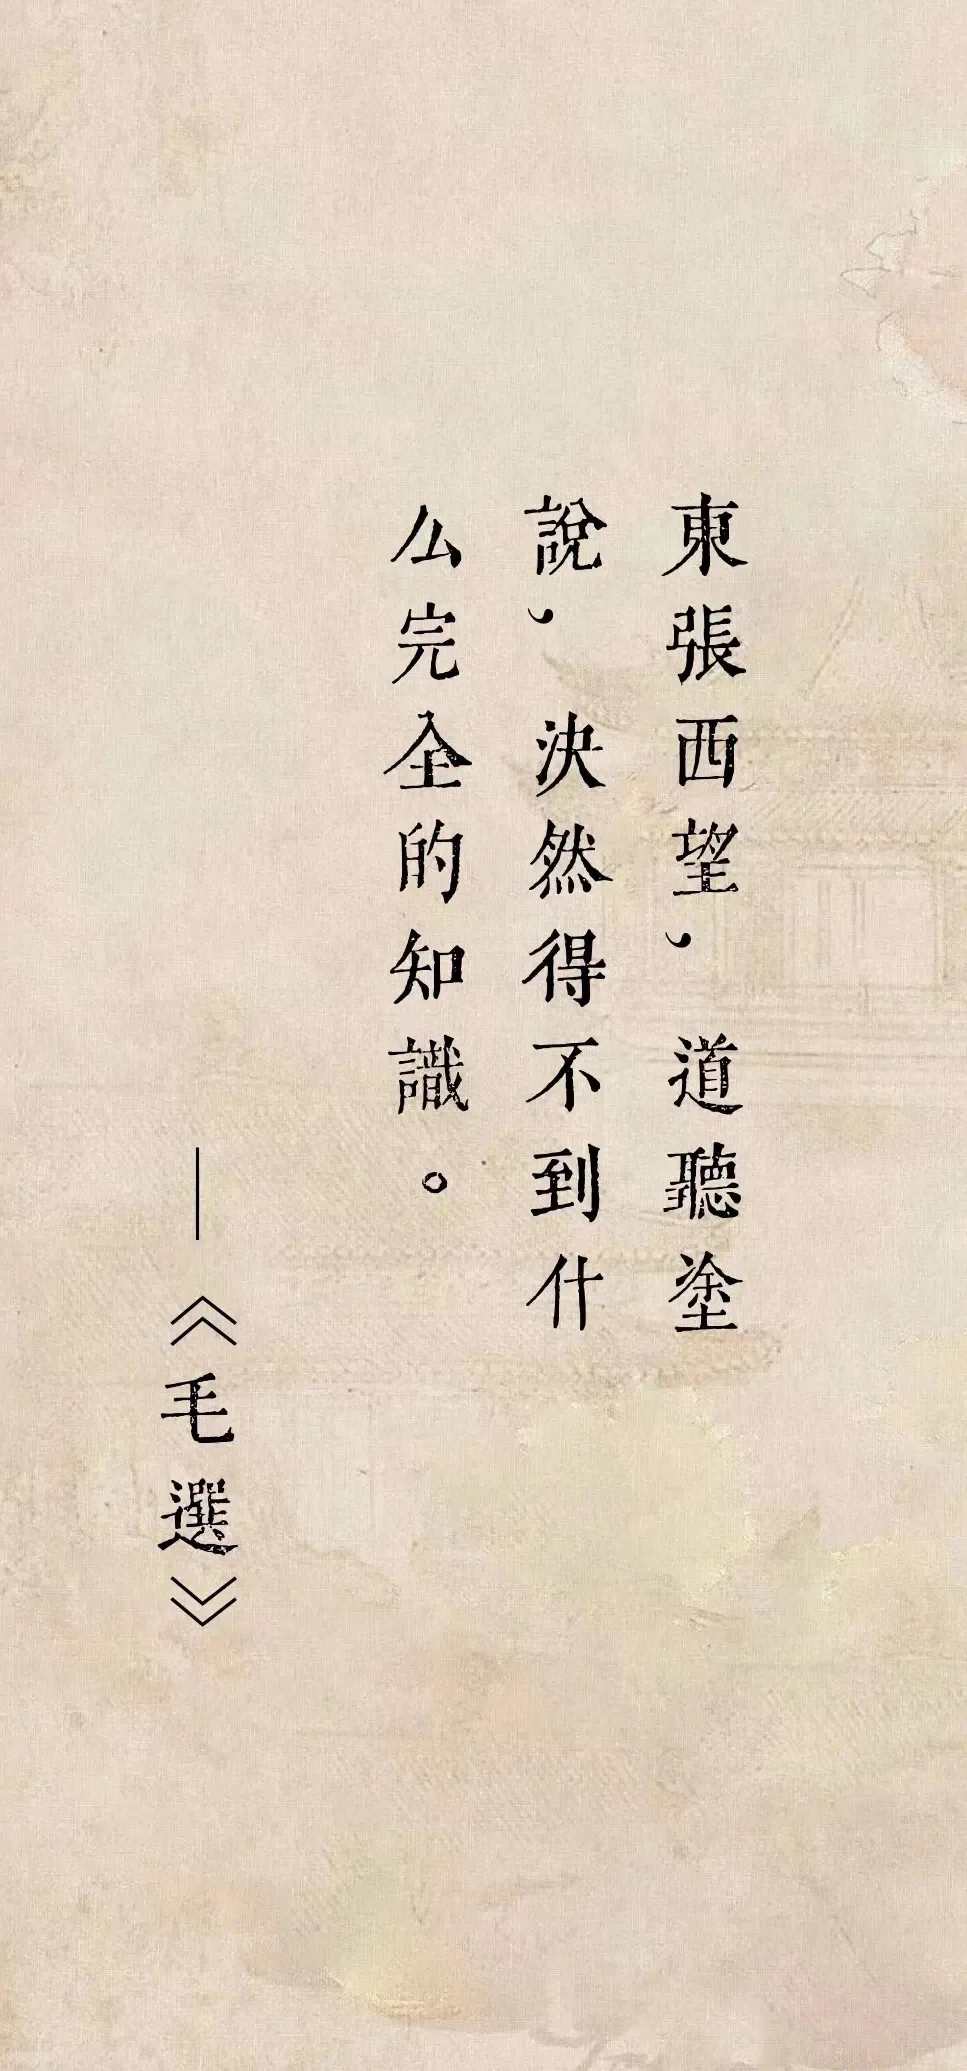 東張西望，道聽塗
說，決然得不到什
么完全的知識。
—《毛選》